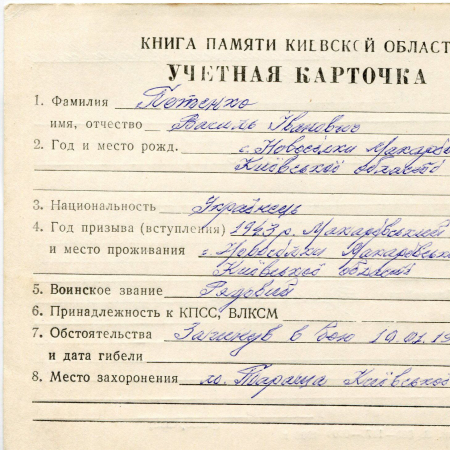 КНИГА ПАМЯТИ КИЕВСКОЙ ОБЛАСТ
УЧЕТНАЯ КАРТОЧКА
1. Фамилия Потенко
имя, отчество Василь Іванович
2. Год и место рожд. с. Новосілки Макарів
Київської області
3. Национальность Українець
4. Год призыва (вступления) 1943 р. Макарівський
и место проживания с. Новосілки Макарівсько
Київської області
5. Воинское звание Рядовий
6. Принадлежность к КПСС, ВЛКСМ
7. Обстоятельства Загинув в бою 19.01.19
и дата гибели
8. Место захоронения м. Тараща Київської